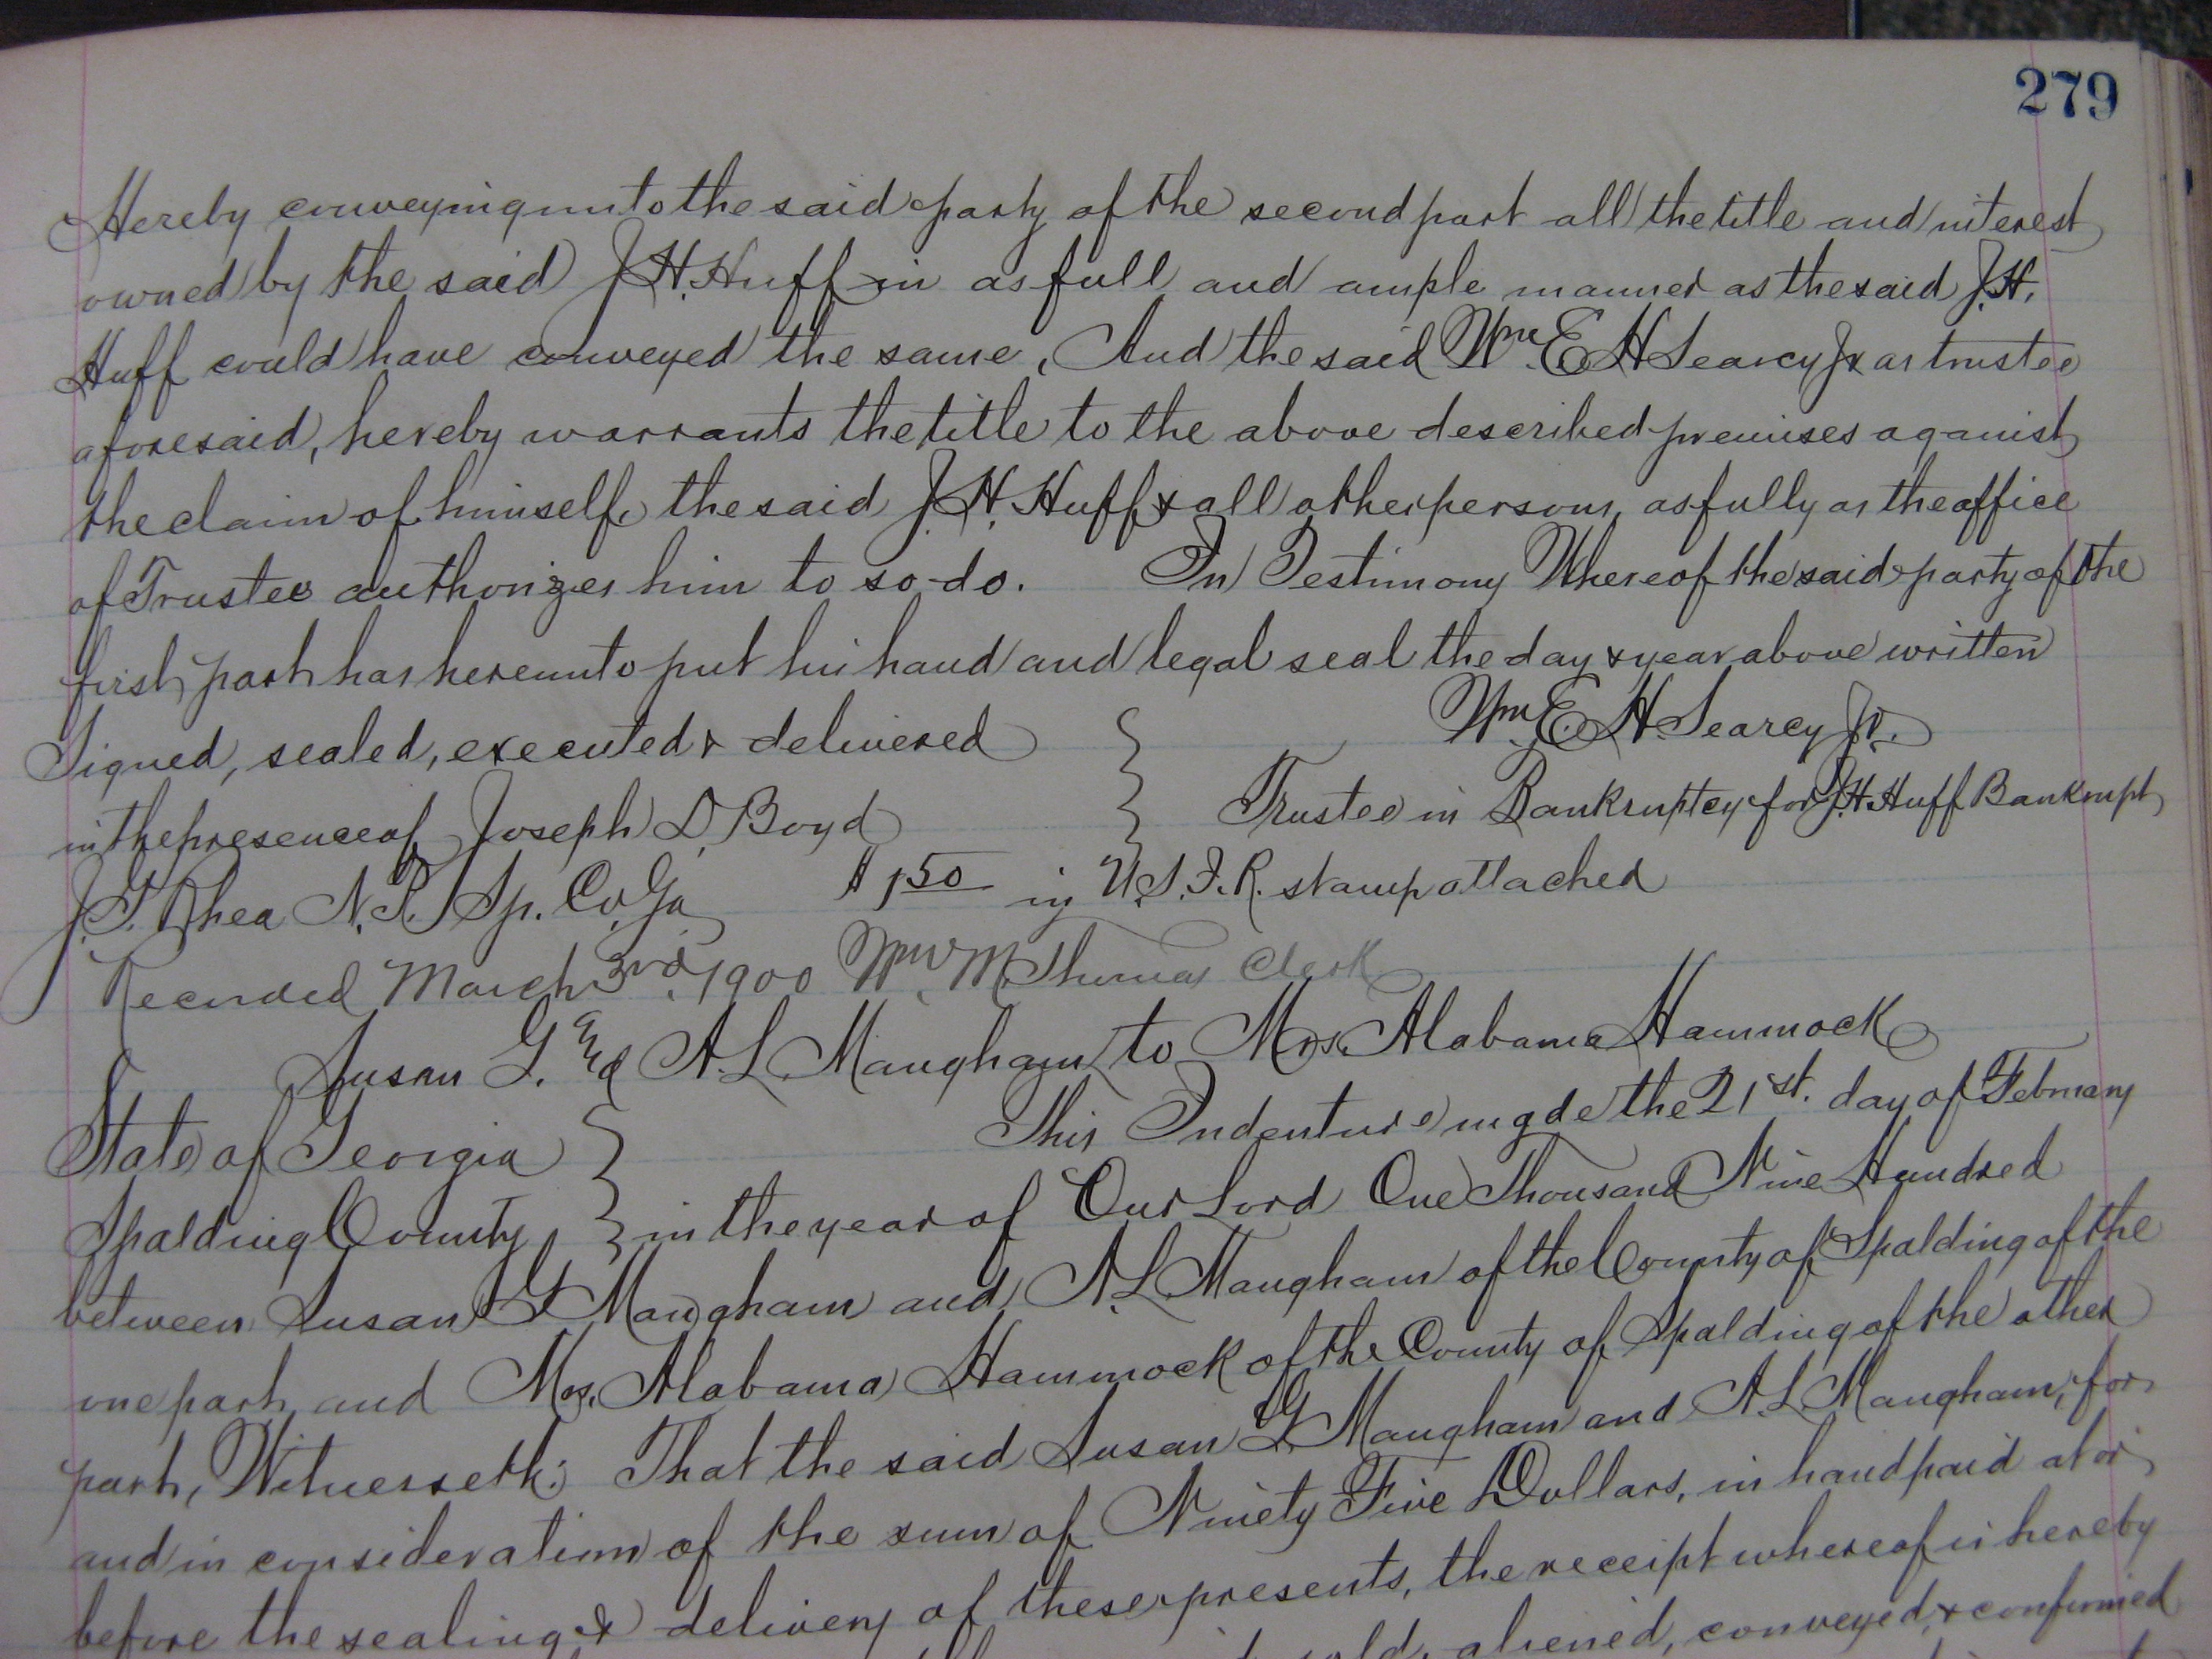 279
Hereby conveying unto the said party of the second part all the title and interest
owned by the said J.H. Huff in as full and ample manner as the said J.H.
Huff could have conveyed the same, And the said Wm. E H Searcy Jr as trustee
aforesaid, hereby warrants the title to the above described premises against
the claim of himself, the said J.H. Huff & all other persons, as fully as the office
of Trustee authorizes him to so-do. In Testimony Whereof the said party of the
first part has hereunto put his hand and legal seal the day & year above written
Wm. E. H. Searcy Jr.
Signed, sealed, executed & delivered
Trustee in Bankruptcy for J.H. Huff Bankrupt
in the presence of Joseph D. Boyd
J.T. Rhea N.P. Sp. Co. Ga $1 50 in U.S.I.R. stamp attached
Recorded March 3rd. 1900 Wm. M Thomas Clerk
Susan G. and A.L. Maugham to Mrs. Alabama Hammock
State of Georgia } This Indenture made the 21st. day of February
Spalding County } in the year of Our Lord One Thousand Nine Hundred
between Susan G Maugham and A.L Maugham of the County of Spalding of the
one part, and Mrs. Alabama Hammock of the County of Spalding of the other
part, Witnesseth: That the said Susan G Maugham and A.L Maugham, for
and in consideration of the sum of Ninety Five Dollars, in hand paid at or
before the sealing & delivery of these presents, the receipt whereof is hereby
sold, aliened, conveyed, & confirmed